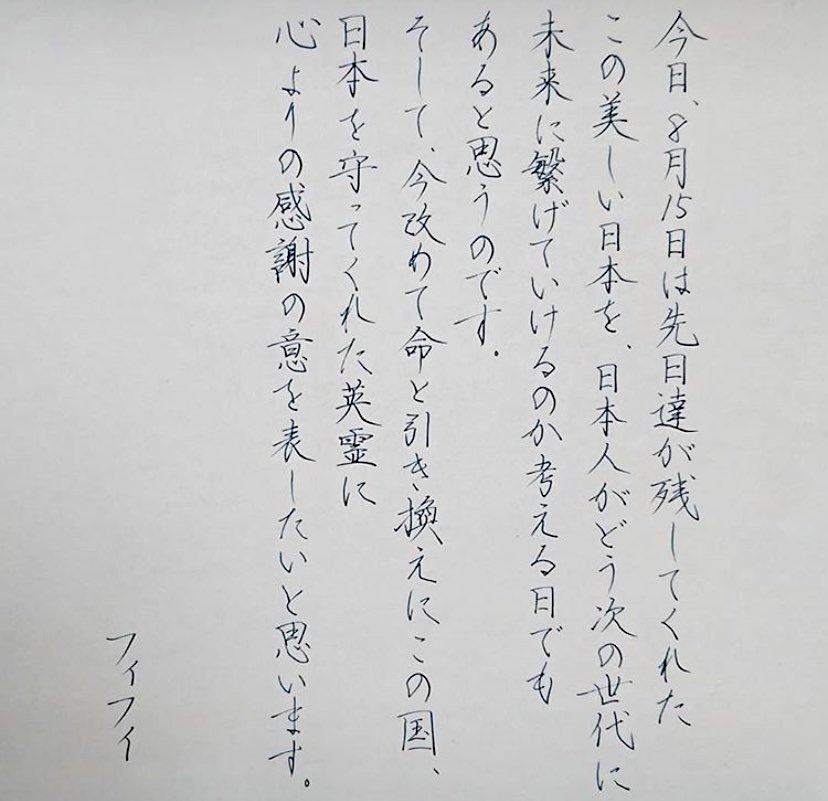 今日、8月15日は先日達が残してくれた
この美しい日本を、日本人がどう次の世代に
未来に繋げていけるのか考える日でも
あると思うのです。
そして、今改めて命と引き換えにこの国、
日本を守ってくれた英霊に
心よりの感謝の意を表したいと思います。
フィフィ